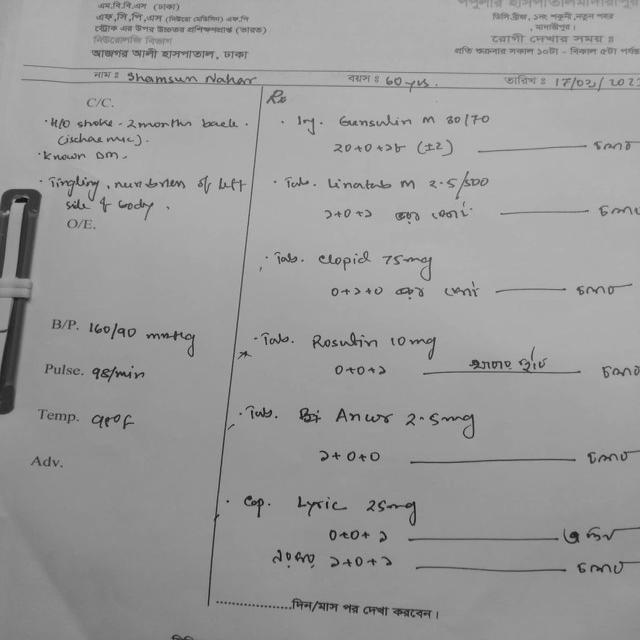 এম.বি.বি.এস (ঢাকা)
এফ,সি,পি,এস (নিউরো মেডিসিন) এফ.পি
স্ট্রোক এর উপর উচ্চতর প্রশিক্ষণপ্রাপ্ত (ভারত)
নিউরোলজি বিভাগ
আজগর আলী হাসপাতাল, ঢাকা
পপুলার হাসপাতাল মাদারীপুর
ডিসি.ব্রীজ, ১নং শকুনী,নতুন শহর
, মাদারীপুর।
রোগী দেখার সময় ঃ
প্রতি শুক্রবার সকাল ১০টা - বিকাল ৫টা পর্যন্ত
নাম ঃ Shamsun Nahar বয়স ঃ 60 yrs. তারিখ ঃ 17/02/202
C/C.
· H/O stroke - 2 months back.
(ischaemic).
· Known DM.
· Tingling, numbness of left
side of body.
O/E.
B/P. 160/90 mmHg
Pulse. 98/min
Temp. 98°F
Adv.
Rx
· Inj. Gensulin M 30/70
20+0+১৮ (±2) চলবে
· Tab. Linatab M 2.5/500
১+0+১ চলবে
· Tab. Clopid 75mg
0+১+0 চলবে
· Tab. Rosutin 10mg
0+0+১ চলবে
· Tab. Bi Ancor 2.5mg
১+0+0 চলবে
· Cap. Lyric 25mg
0+0+১
১+0+১ চলবে
..................দিন/মাস পর দেখা করবেন।